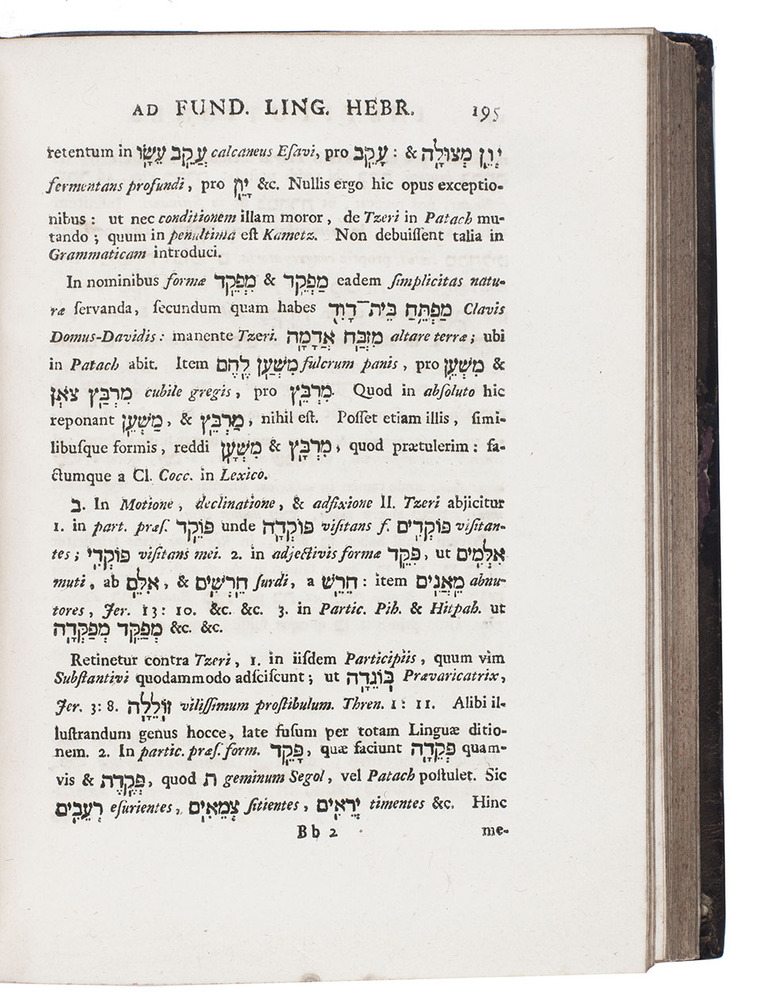 AD FUND. LING. HEBR. 195
retentum in עֲקֵב עֵשָׂו calcaneus Esavi, pro עָקֵב : & יְוֵן מְצוּלָה
fermentans profundi, pro יָוֵן &c. Nullis ergo hic opus exceptio-
nibus : ut nec conditionem illam moror, de Tzeri in Patach mu-
tando ; quum in penultima est Kametz. Non debuissent talia in
Grammaticam introduci.
In nominibus formæ מִפְקֵד & מַפְקֵד eadem simplicitas natu-
ræ servanda, secundum quam habes מַפְתֵּחַ בֵּית־דָּוִד Clavis
Domus-Davidis : manente Tzeri. מִזְבַּח אֲדָמָה altare terræ ; ubi
in Patach abit. Item מִשְׁעַן לֶחֶם fulcrum panis, pro מִשְׁעֵן &
מִרְבַּץ צֹאן cubile gregis, pro מִרְבֵּץ. Quod in absoluto hic
reponant מַשְׁעֵן, & מַרְבֵּץ, nihil est. Posset etiam illis, simi-
libusque formis, reddi מִשְׁעָן & מִרְבָּץ, quod prætulerim : fa-
ctumque a Cl. Cocc. in Lexico.
ב. In Motione, declinatione, & adfixione II. Tzeri abjicitur
1. in part. præs. פּוֹקֵד unde פּוֹקְדָה visitans f. פּוֹקְדִים visitan-
tes ; פּוֹקְדִי visitans mei. 2. in adjectivis formæ פִּקֵּד, ut אִלְּמִים
muti, ab אִלֵּם, & חֵרְשִׁים surdi, a חֵרֵשׁ : item מֵאֲנִים abnu-
tores, Jer. 13 : 10. &c. &c. 3. in Partic. Pih. & Hitpah. ut
מְפַקֵּד מְפַקְּדָה &c. &c.
Retinetur contra Tzeri, 1. in iisdem Participiis, quum vim
Substantivi quodammodo adsciscunt ; ut בּוֹגֵדָה Prævaricatrix,
Jer. 3 : 8. זוֹלֵלָה vilissimum prostibulum. Thren. 1 : 11. Alibi il-
lustrandum genus hocce, late fusum per totam Linguæ ditio-
nem. 2. In partic. præs. form. פָּקֵד, quæ faciunt פְּקֵדָה quam-
vis & פְּקֶדֶה, quod ת geminum Segol, vel Patach postulet. Sic
רְעֵבִים esurientes, צְמֵאִים sitientes, יְרֵאִים timentes &c. Hinc
Bb 2 me-